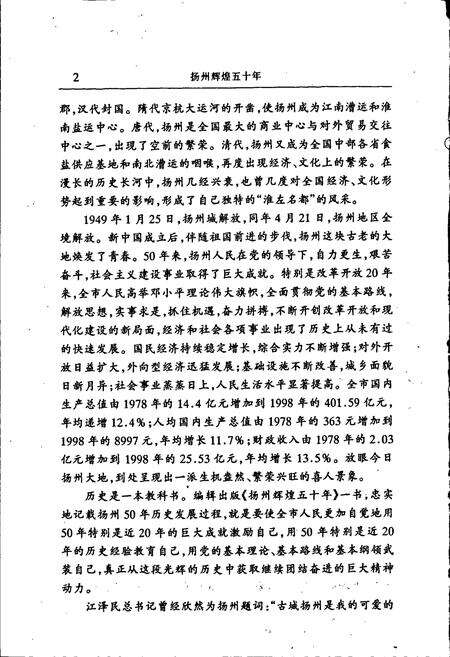 2 扬州辉煌五十年
郡,汉代封国。隋代京杭大运河的开凿,使扬州成为江南漕运和淮
南盐运中心。唐代,扬州是全国最大的商业中心与对外贸易交往
中心之一,出现了空前的繁荣。清代,扬州又成为全国中部各省食
盐供应基地和南北漕运的咽喉,再度出现经济、文化上的繁荣。在
漫长的历史长河中,扬州几经兴衰,也曾几度对全国经济、文化形
势起到重要的影响,形成了自己独特的“淮左名都”的风采。
1949年1月25日,扬州城解放,同年4月21日,扬州地区全
境解放。新中国成立后,伴随祖国前进的步伐,扬州这块古老的大
地焕发了青春。50年来,扬州人民在党的领导下,自力更生,艰苦
奋斗,社会主义建设事业取得了巨大成就。特别是改革开放20年
来,全市人民高举邓小平理论伟大旗帜,全面贯彻党的基本路线,
解放思想,实事求是,抓住机遇,奋力拼搏,不断开创改革开放和现
代化建设的新局面,经济和社会各项事业出现了历史上从未有过
的快速发展。国民经济持续稳定增长,综合实力不断增强;对外开
放日益扩大,外向型经济迅猛发展;基础设施不断改善,城乡面貌
日新月异;社会事业蒸蒸日上,人民生活水平显著提高。全市国内
生产总值由1978年的14.4亿元增加到1998年的401.59亿元,
年均递增12.4%;人均国内生产总值由1978年的363元增加到
1998年的8997元,年均增长11.7%;财政收入由1978年的2.03
亿元增加到1998年的25.53亿元,年均增长13.5%。放眼今日
扬州大地,到处呈现出一派生机盎然、繁荣兴旺的喜人景象。
历史是一本教科书。编辑出版《扬州辉煌五十年》一书,忠实
地记载扬州50年历史发展过程,就是要使全市人民更加自觉地用
50年特别是近20年的巨大成就激励自己,用50年特别是近20
年的历史经验教育自己,用党的基本理论、基本路线和基本纲领武
装自己,真正从这段光辉的历史中获取继续团结奋进的巨大精神
动力。
江泽民总书记曾经欣然为扬州题词:“古城扬州是我的可爱的